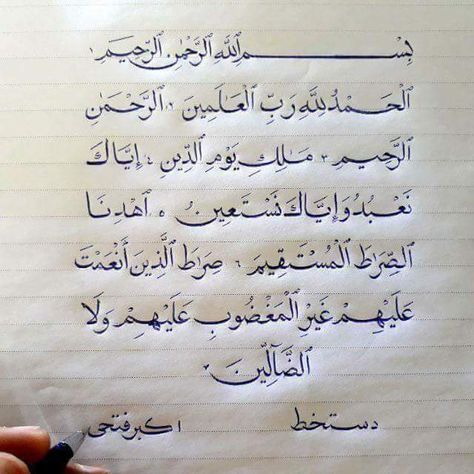 بِسْمِ ٱللَّهِ ٱلرَّحْمَٰنِ ٱلرَّحِيمِ ١
ٱلْحَمْدُ لِلَّهِ رَبِّ ٱلْعَالَمِينَ ٢ ٱلرَّحْمَٰنِ
ٱلرَّحِيمِ ٣ مَالِكِ يَوْمِ ٱلدِّينِ ٤ إِيَّاكَ
نَعْبُدُ وَإِيَّاكَ نَسْتَعِينُ ٥ ٱهْدِنَا
ٱلصِّرَاطَ ٱلْمُسْتَقِيمَ ٦ صِرَاطَ ٱلَّذِينَ أَنْعَمْتَ
عَلَيْهِمْ غَيْرِ ٱلْمَغْضُوبِ عَلَيْهِمْ وَلَا
ٱلضَّآلِّينَ ٧
دستخط اکبر فتحی